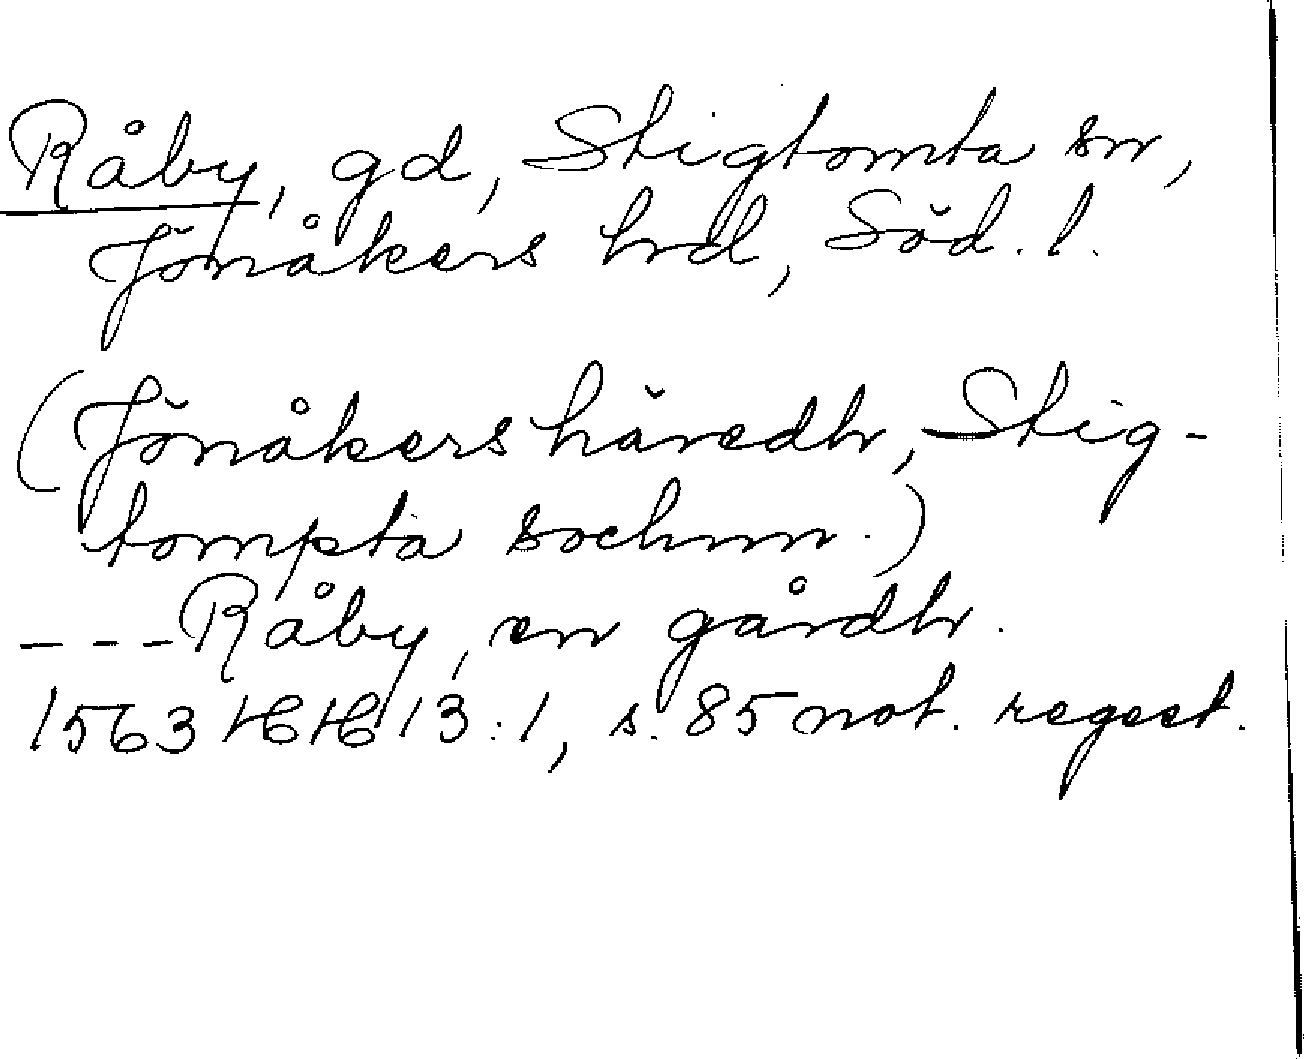 Råby, gd, Stigtomta sn,
Jönåkers hrd, Söd. l.
(Jönåkers häredh, Stig-
tompta sochnn.)
---Råby, en gårdh.
1563 HH 13:1, s. 85 not. regest.